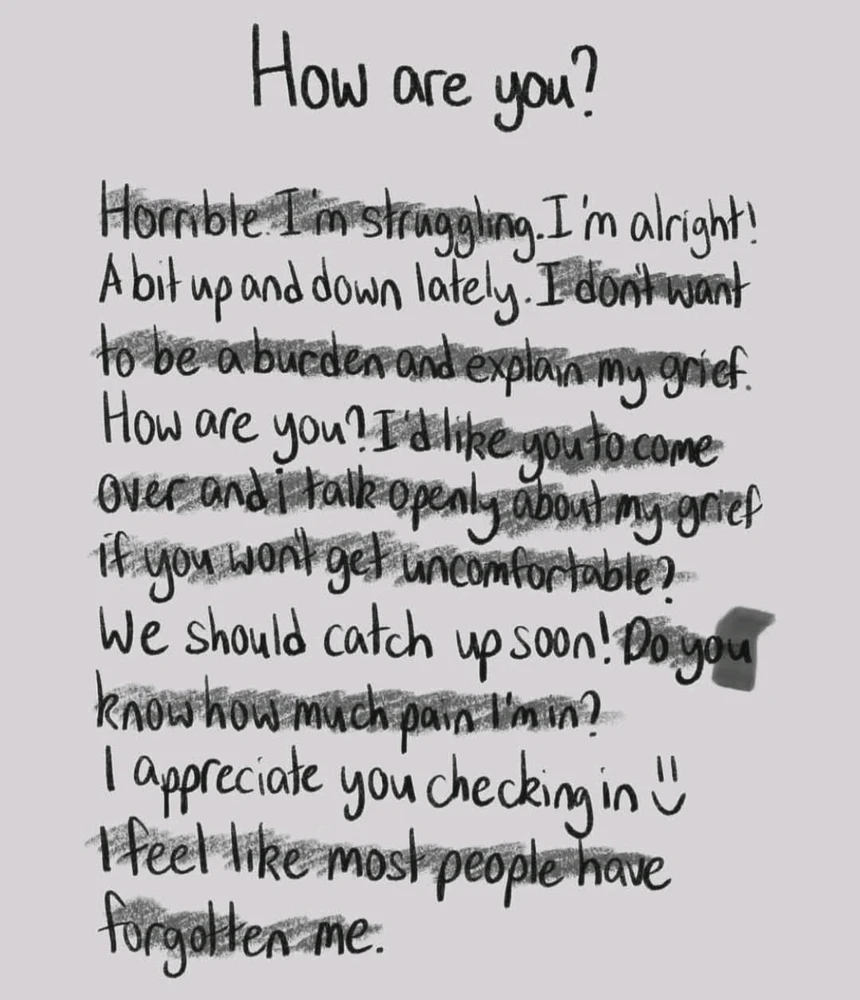 How are you?
Horrible. I'm struggling. I'm alright!
A bit up and down lately. I don't want
to be a burden and explain my grief.
How are you? I'd like you to come
over and i talk openly about my grief
if you won't get uncomfortable?
We should catch up soon! Do you
know how much pain I'm in?
I appreciate you checking in :)
I feel like most people have
forgotten me.